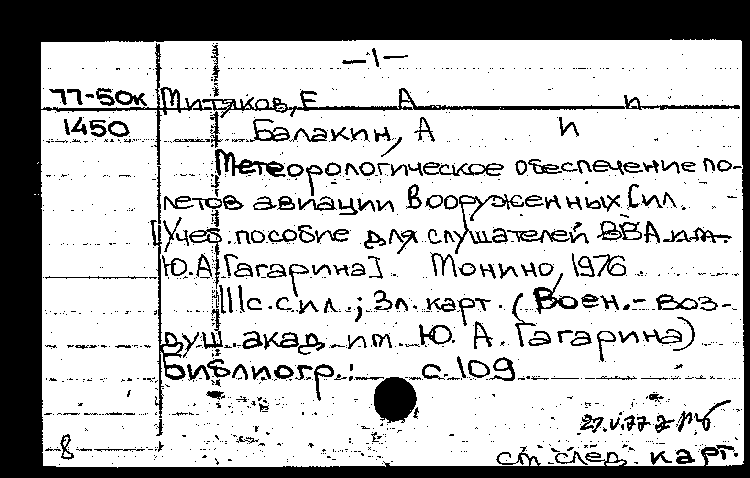 -1-
77-50к Митяков, Е А п
1450 Балакин, А п
Метеорологическое обеспечение по-
летов авиации Вооруженных Сил.
[Учеб. пособие для слушателей ВВА им.
Ю.А.Гагарина]. Монино, 1976.
111с.с ил.; 3л. карт. (Воен.- воз-
душ. акад. им. Ю. А. Гагарина)
Библиогр.: с.109
27.V.77 г
8 см. след. карт.